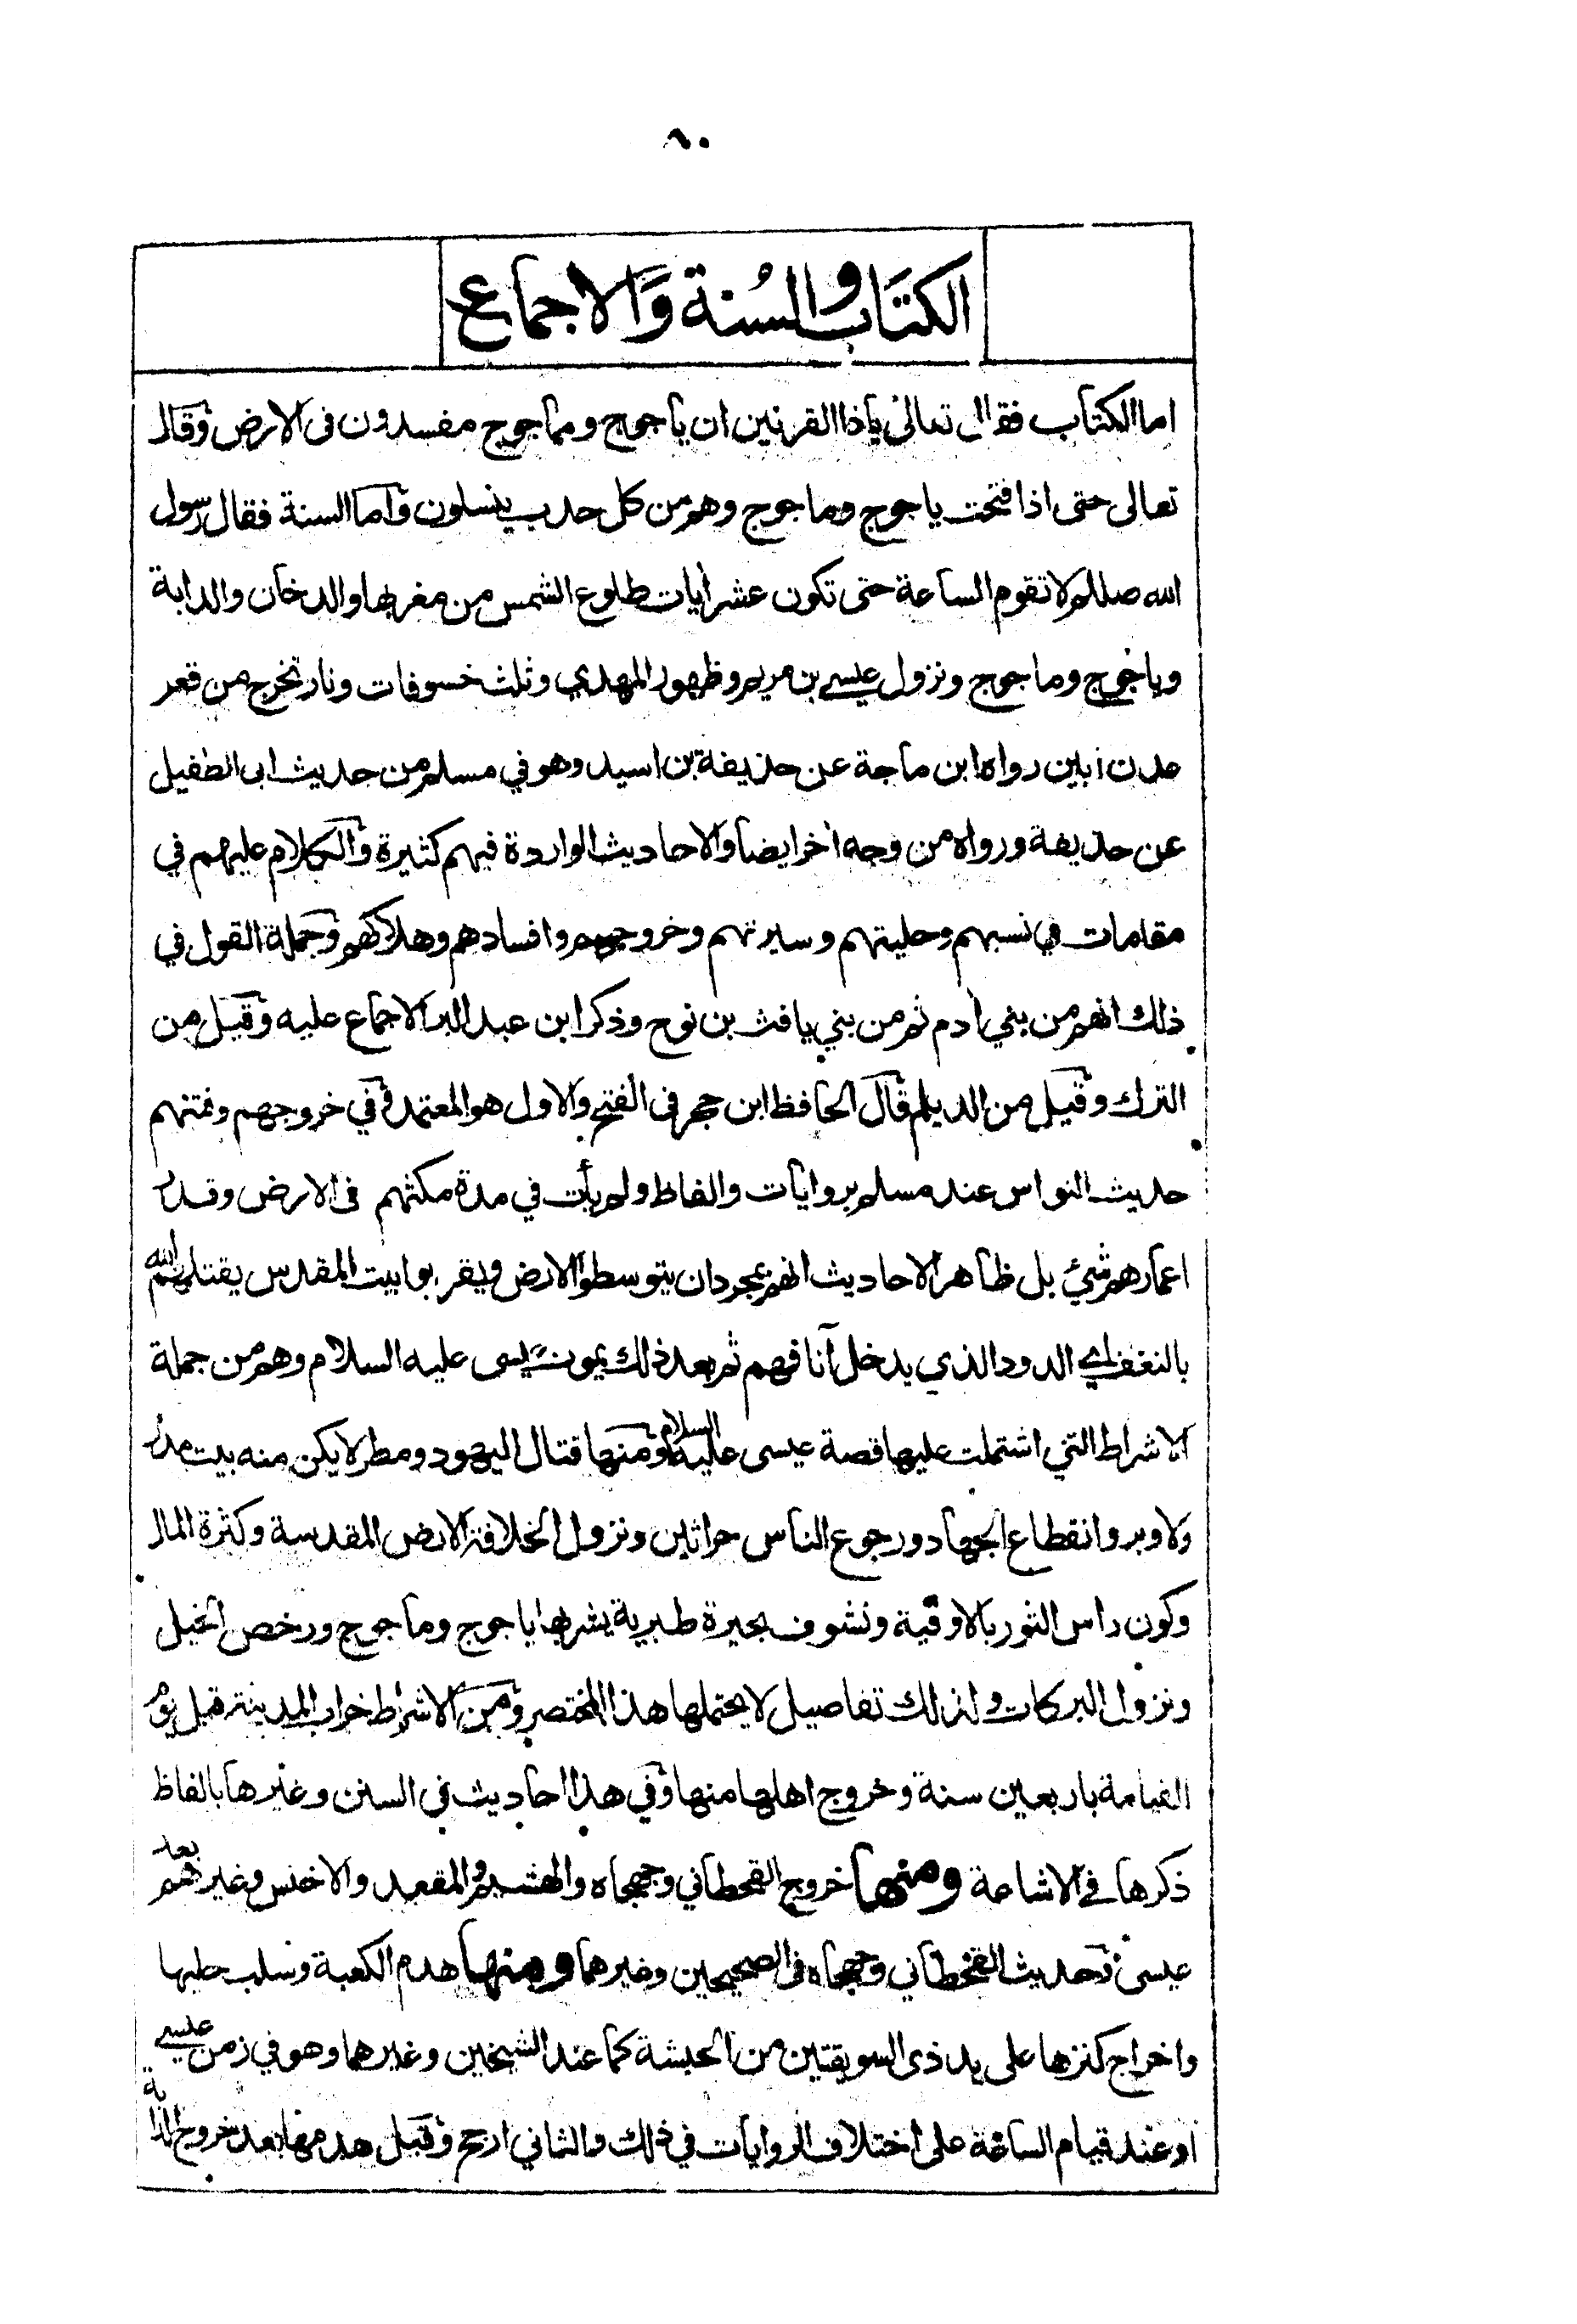 ٨٠
الكتاب والسنة والاجماع
اما الكتاب فقال تعالى ياذا القرنين ان ياجوج وماجوج مفسدون فى الارض وقال
تعالى حتى اذا فتحت ياجوج وماجوج وهم من كل حدب ينسلون واما السنة فقال رسول
الله صللم لا تقوم الساعة حتى تكون عشر أيات طلوع الشمس من مغربها والدخان والدابة
وياجوج وماجوج ونزول عيسى بن مريم وظهور المهدي وثلث خسوفات ونار تخرج من قعر
عدن أبين رواه ابن ماجة عن حذيفة بن اسيد وهو في مسلم من حديث ابى الطفيل
عن حذيفة ورواه من وجه أخر ايضا والاحاديث الواردة فيهم كثيرة والكلام عليهم في
مقامات في نسبهم وحليتهم وسيرتهم وخروجهم وافسادهم وهلاكهم وجملة القول في
ذلك انهم من بني أدم ثم من بني يافث بن نوح وذكر ابن عبد البر الاجماع عليه وقيل من
الترك وقيل من الديلم قال الحافظ ابن حجر فى الفتح والاول هو المعتمد وفي خروجهم وفتنهم
حديث النواس عند مسلم بروايات والفاظ ولم يأت في مدة مكثهم فى الارض وقدر
اعمارهم شئ بل ظاهر الاحاديث انهم بمجرد ان يتوسطوا الارض ويقربوا بيت المقدس يقتلهم الله
بالنغف اي الدود الذي يدخل آنافهم ثم بعد ذلك يموت عيسى عليه السلام وهم من جملة
الاشراط التي اشتملت عليها قصة عيسى عليه السلام ومنها قتال اليهود ومطر لا يكن منه بيت مدر
ولا وبر وانقطاع الجهاد ورجوع الناس حراثين ونزول الخلافة الارض المقدسة وكثرة المال
وكون راس الثور بالاوقية ونشوف بحيرة طبرية يشربها ياجوج وماجوج ورخص الخيل
ونزول البركات ولذلك تفاصيل لا يحتملها هذا المختصر ومن الاشراط خراب المدينة قبل يوم
القيامة باربعين سنة وخروج اهلها منها وفي هذا احاديث في السنن وغيرها بالفاظ
ذكرها في الاشاعة ومنها خروج القحطاني وجهجاه والهشيم والمقعد والاخنس وغيرهم بعد
عيسى وحديث القحطاني وجهجاه فى الصحيحين وغيرهما ومنها هدم الكعبة وسلب حليها
واخراج كنزها على يد ذى السويقتين من الحبشة كما عند الشيخين وغيرهما وهو في زمن عيسى
او عند قيام الساعة على اختلاف الروايات في ذلك والثاني ارجح وقيل هدمها بعد خروج الدابة